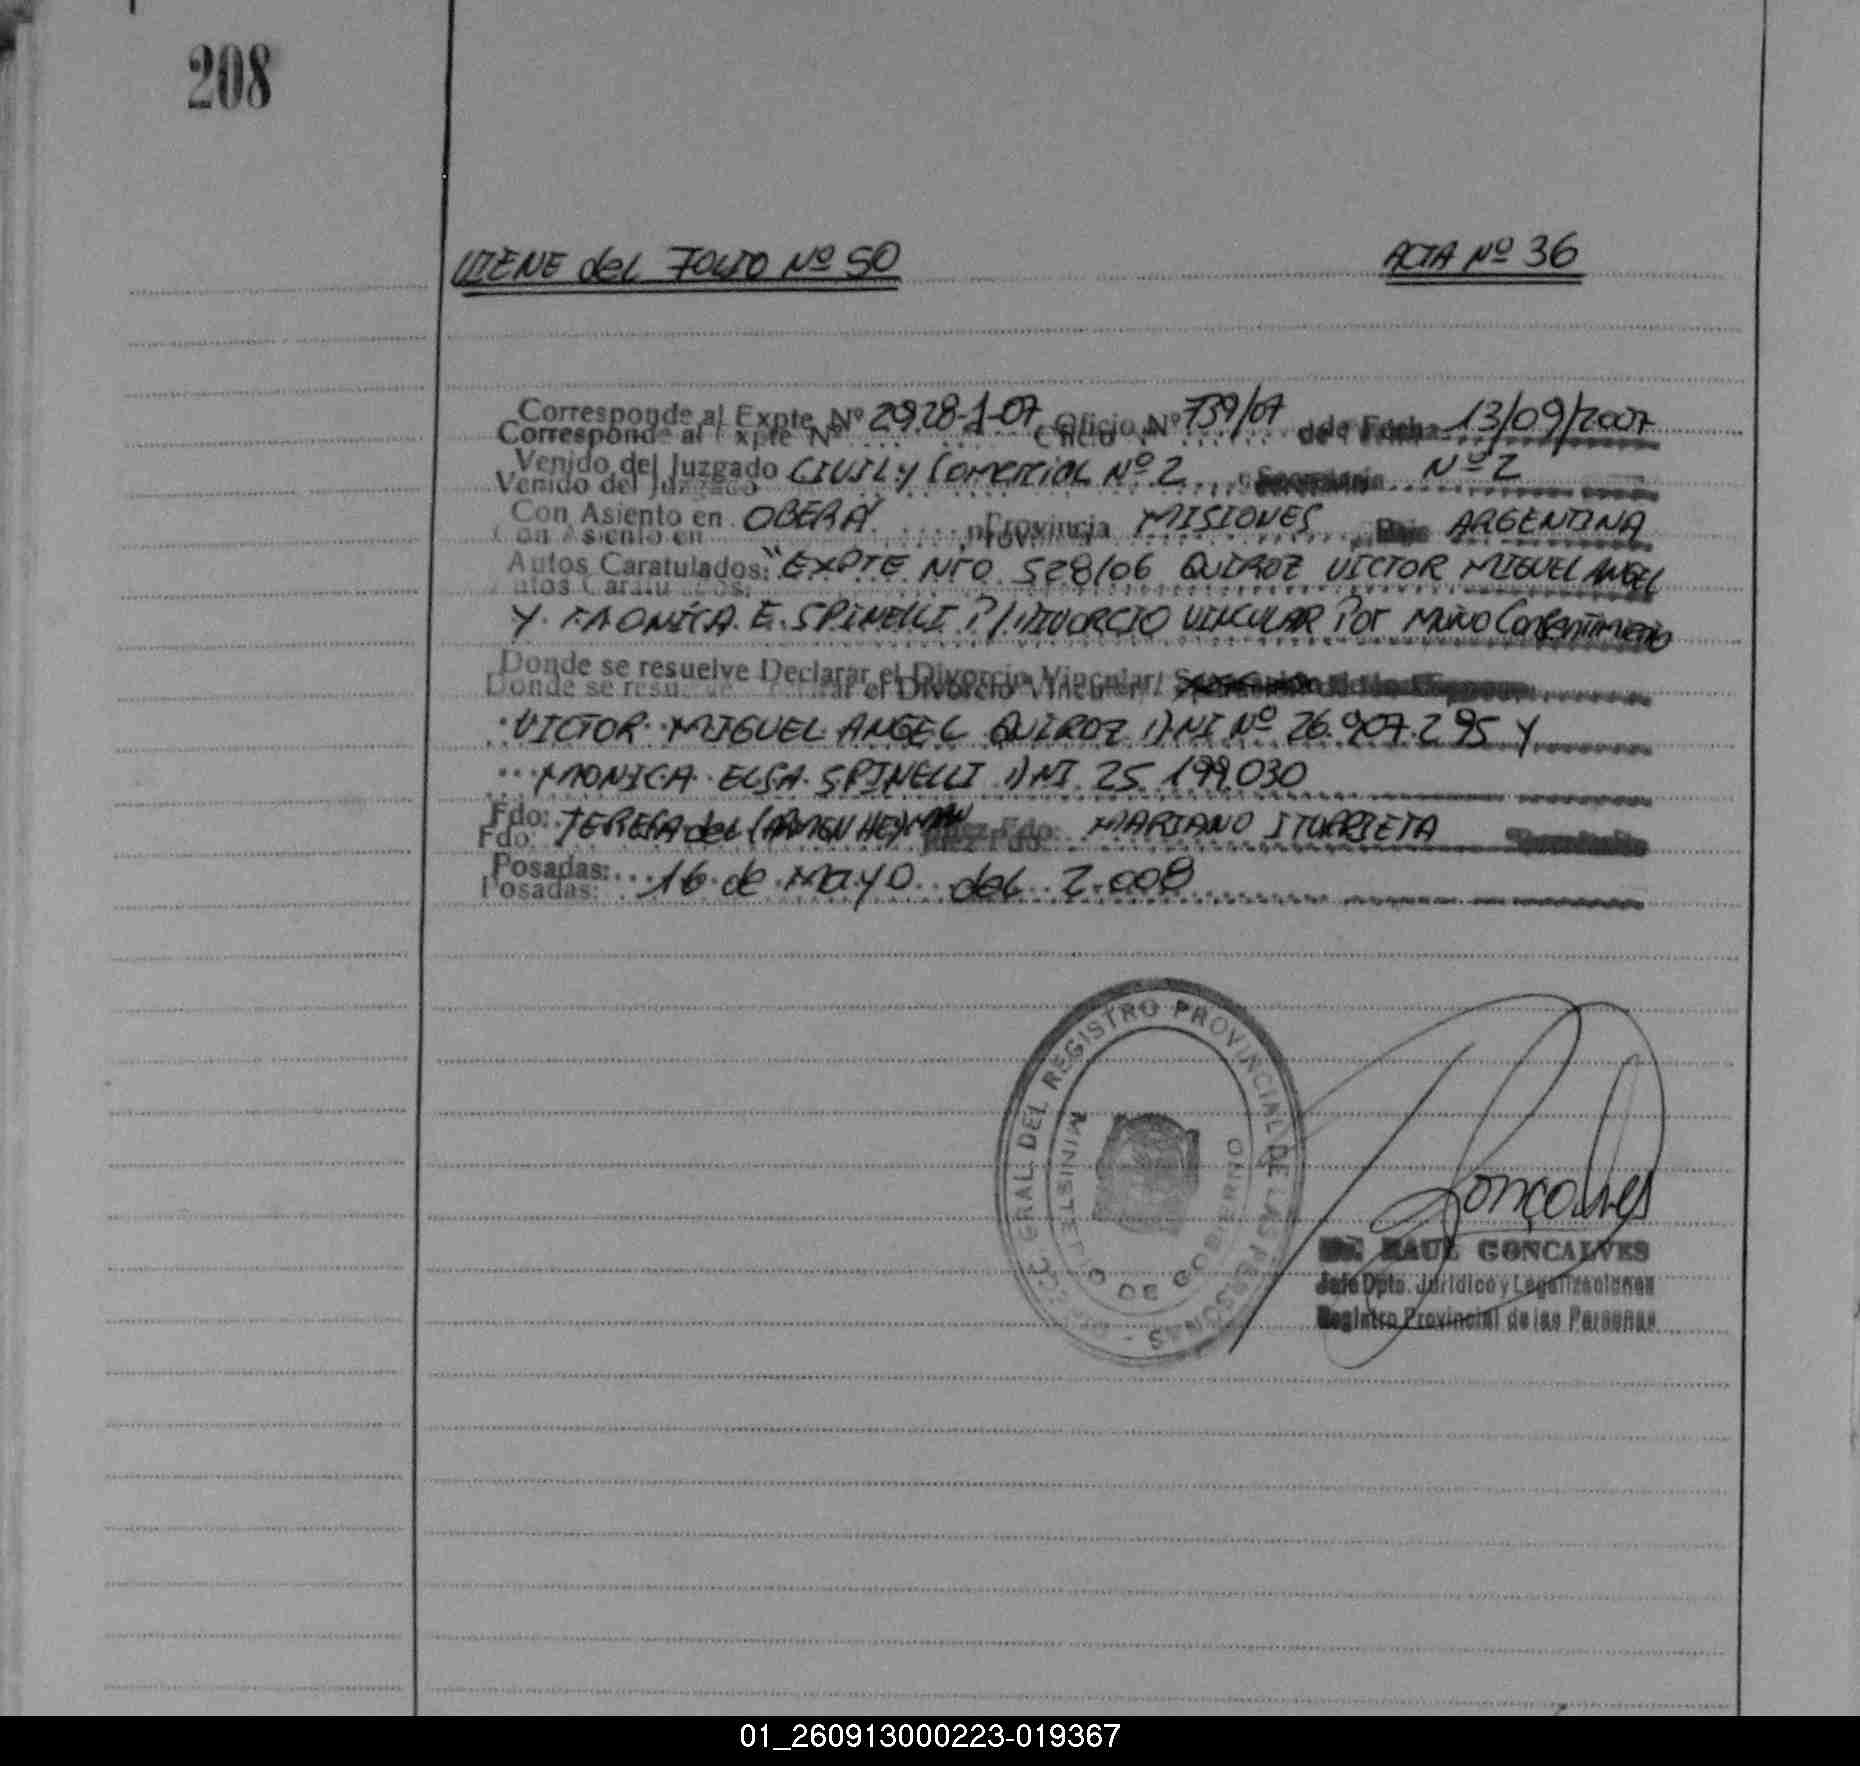 208
VIENE del FOLIO Nº 50 ACTA Nº 36
Corresponde al Expte Nº 2928-1-07 Oficio Nº 739/07 de Fecha 13/09/2007
Venido del Juzgado CIVIL y Comercial Nº 2 Secretaria Nº 2
Con Asiento en OBERA Provincia MISIONES Pais ARGENTINA
Autos Caratulados: "EXPTE NRO 528/06 QUIROZ VICTOR MIGUEL ANGEL
Y MONICA E. SPINELLI P/ DIVORCIO VINCULAR Por Mutuo Consentimiento
Donde se resuelve Declarar el Divorcio Vincular/
VICTOR MIGUEL ANGEL QUIROZ DNI Nº 26.907.295 Y
MONICA ELSA SPINELLI DNI 25.199.030
Fdo: TERESA del CARMEN Juez Fdo: MARIANO ITURRIETA Secretario
Posadas: 16 de Mayo del 2.008
GRAL DEL REGISTRO PROVINCIAL DE LAS PERSONAS
MINISTERIO DE GOBIERNO
Goncalves
RAUL GONCALVES
Jefe Dpto. Jurídico y Legalizaciones
Registro Provincial de las Personas
01_260913000223-019367